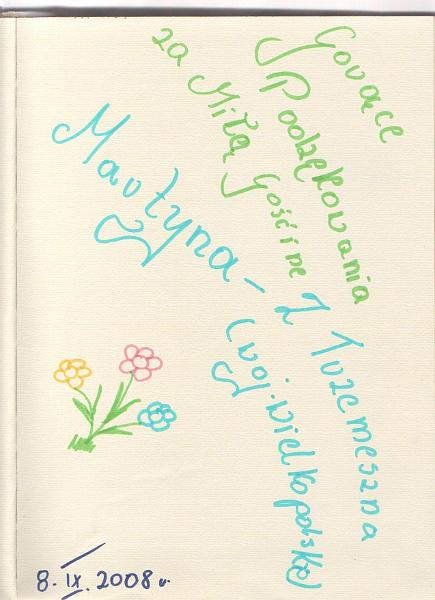 Gorące
Podziękowania
za Miłą Gościnę
Martyna - z Trzemeszna
(woj. wielkopolskie)
8.IX.2008r.